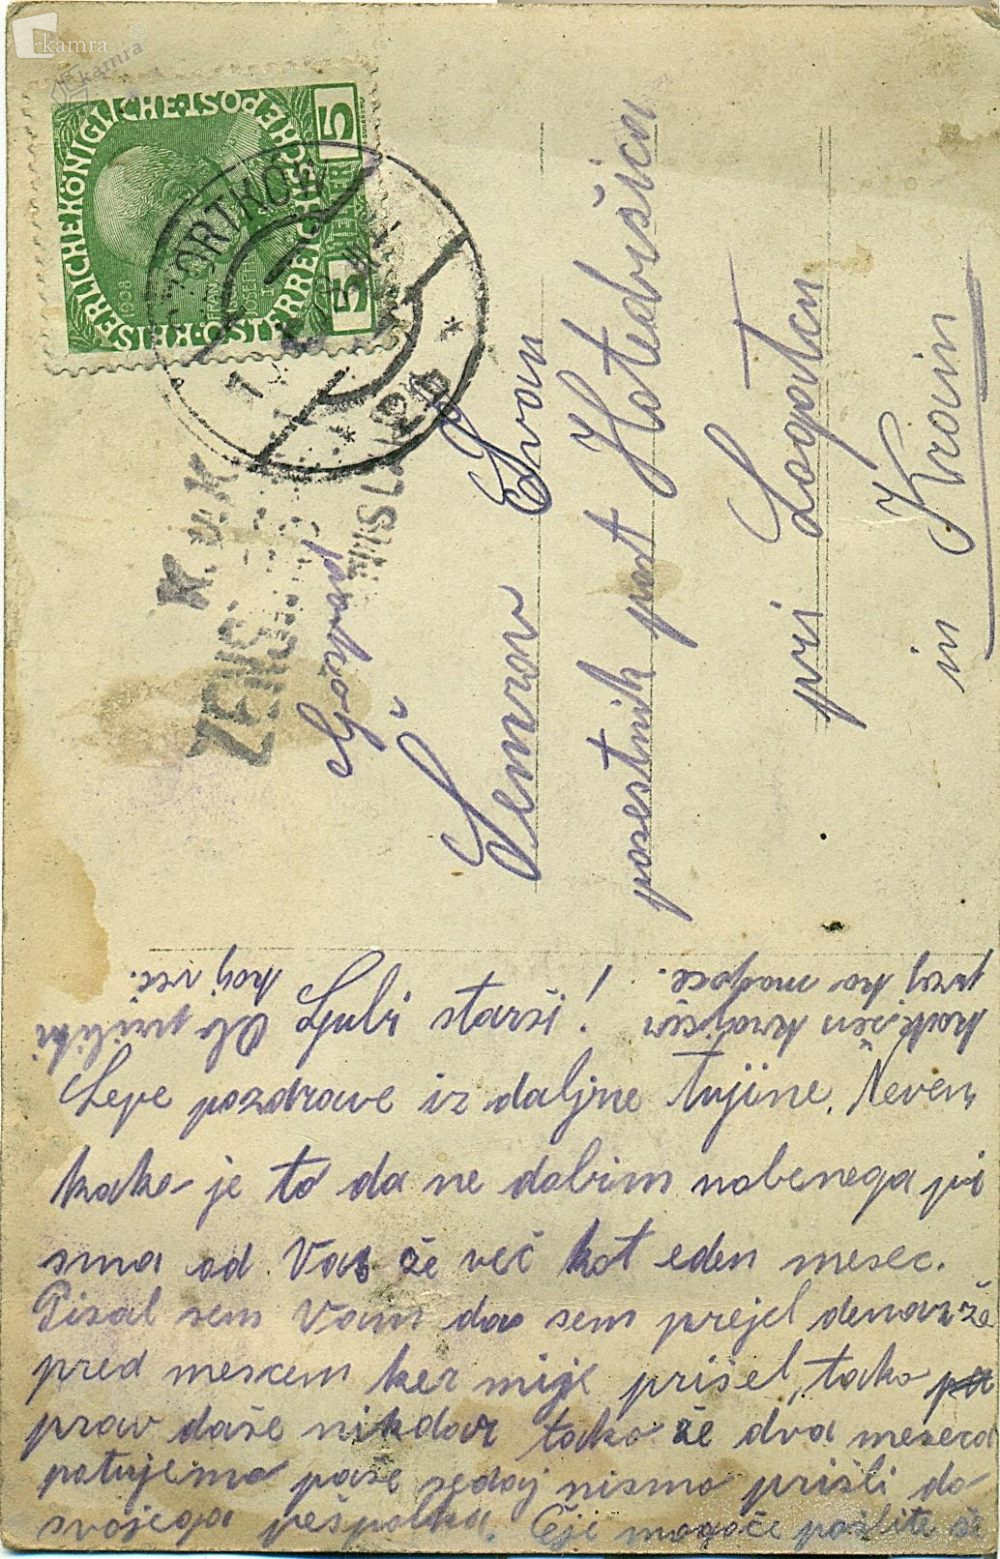 kamra
kamra
KAISERLICHE KÖNIGLICHE
ÖSTERREICHISCHE POST
5 HELLER 5
1908
FRANZ JOSEPH I
K. u. K.
ZENS
Gospod
Šemrov Ivan
posestnik post Hotedršica
pri Logatcu
in Krain
Ljubi starši!
Lepe pozdrave iz daljne tujine. Nevem
kako je to da ne dobim nobenega pi
sma od Vas že več kot eden mesec.
Pisal sem Vam da sem prejel denar že
pred mescem ker mi je prišel, tako
prav daše nikdar tako že dva meseca
potujemo paše sedaj nismo prišli do
svojega pešpolka. Čeje mogoče pošlite še
kakšen krajcar
prej ko mogoče.
Ob priliki
kaj več.